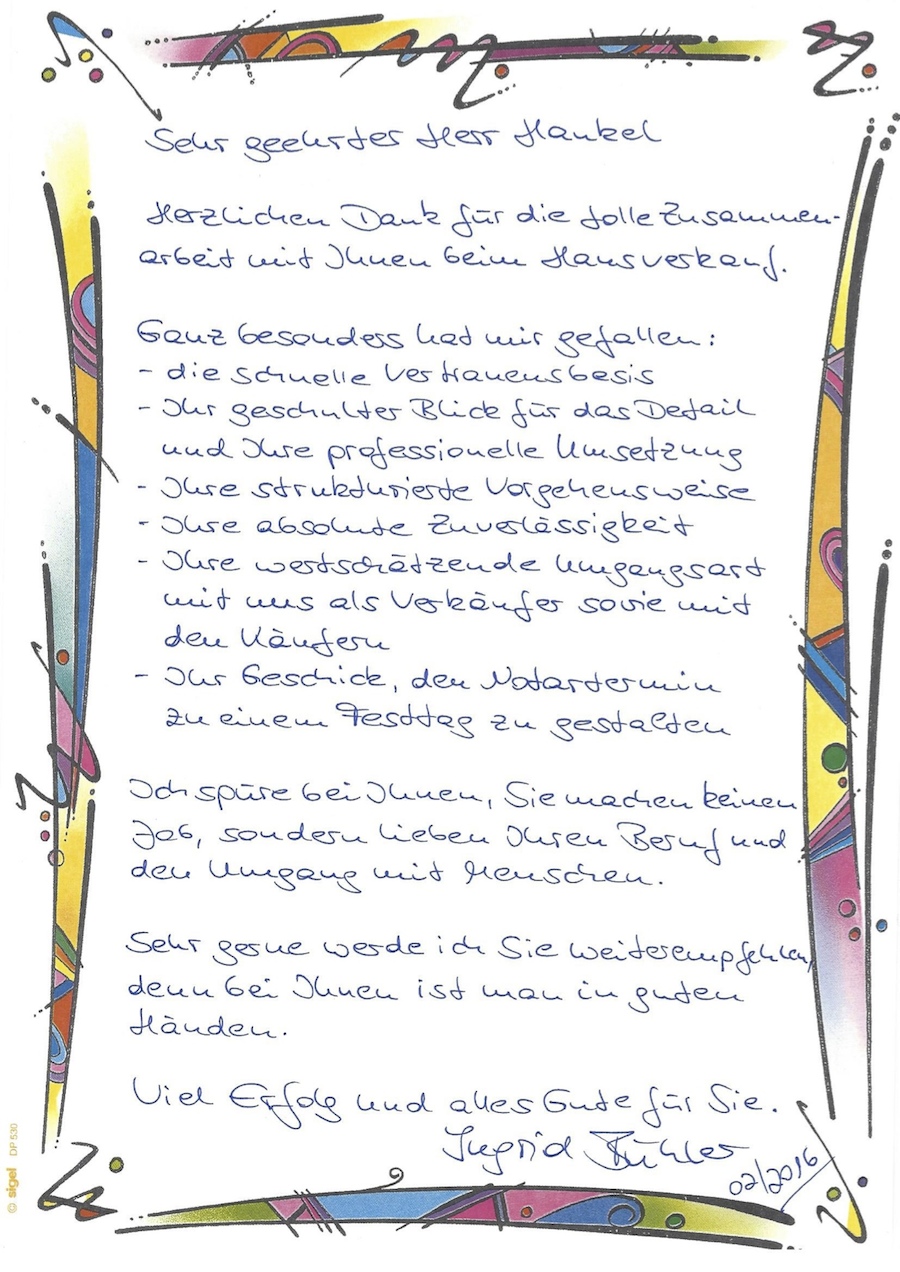 Sehr geehrter Herr Hankel
Herzlichen Dank für die tolle Zusammen-
arbeit mit Ihnen beim Hausverkauf.
Ganz besonders hat mir gefallen:
- die schnelle Vertrauensbasis
- Ihr geschulter Blick für das Detail
und Ihre professionelle Umsetzung
- Ihre strukturierte Vorgehensweise
- Ihre absolute Zuverlässigkeit
- Ihre wertschätzende Umgangsart
mit uns als Verkäufer sowie mit
den Käufern
- Ihr Geschick, den Notartermin
zu einem Festtag zu gestalten
Ich spüre bei Ihnen, Sie machen keinen
Job, sondern lieben Ihren Beruf und
den Umgang mit Menschen.
Sehr gerne werde ich Sie weiterempfehlen,
denn bei Ihnen ist man in guten
Händen.
Viel Erfolg und alles Gute für Sie.
Ingrid
02/2016
© sigel DP 530